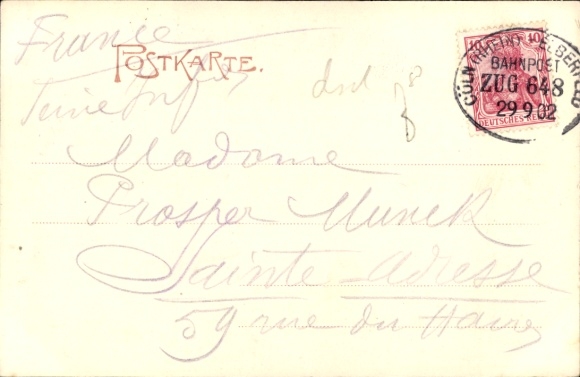 France
POSTKARTE.
Madame
Prosper Munck
Sainte Adresse
59 rue du Havre
10 10
DEUTSCHES REICH
CÖLN (RHEIN) - ELBERFELD
BAHNPOST
ZUG 648
29 9 02